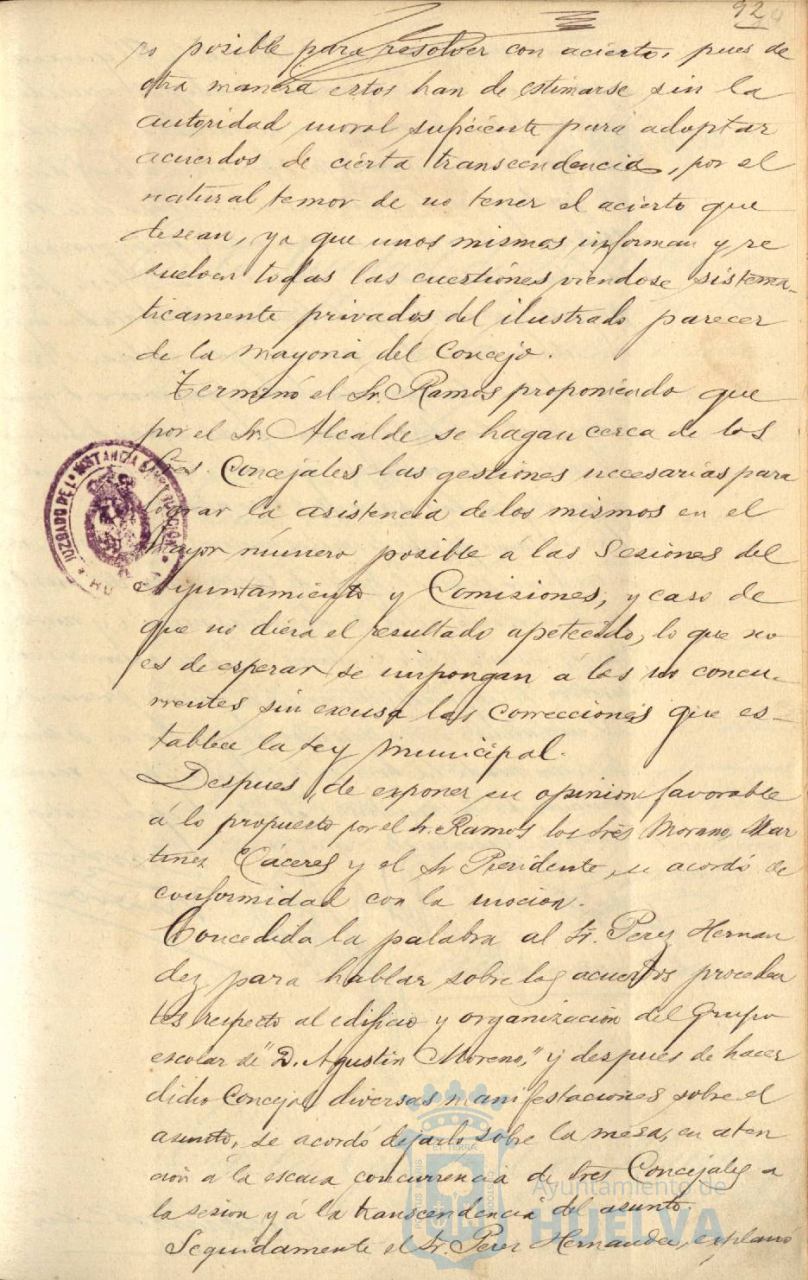 92
ro posible para resolver con acierto, pues de
otra manera estos han de estimarse sin la
autoridad moral suficiente para adoptar
acuerdos de cierta transcendencia, por el
natural temor de no tener el acierto que
desean, ya que unos mismos informan y re
suelven todas las cuestiones viendose sistema-
ticamente privados del ilustrado parecer
de la mayoria del Concejo.
Terminó el Sr. Ramos proponiendo que
por el Sr. Alcalde se hagan cerca de los
Sres. Concejales las gestiones necesarias para
lograr la asistencia de los mismos en el
mayor número posible á las Sesiones del
Ayuntamiento y Comisiones, y caso de
que no diera el resultado apetecido, lo que no
es de esperar se impongan á los no concu-
rrentes sin excusa las correcciones que es-
tablece la Ley Municipal.
Despues de exponer su opinion favorable
á lo propuesto por el Sr. Ramos los Sres Morano, Mar
tinez Cáceres y el Sr Presidente, se acordó de
conformidad con la mocion.
Concedida la palabra al Sr. Perez Hernan
dez para hablar sobre los acuerdos proceden
tes respecto al edificio y organización del Grupo
escolar de "D. Agustin Moreno," y despues de hacer
dicho Concejal diversas manifestaciones sobre el
asunto, se acordó dejarlo sobre la mesa, en aten
ción á la escasa concurrencia de Sres Concejales a
la sesion y á la transcendencia del asunto.
Seguidamente el Sr. Perez Hernandez, explanó
JUZGADO DE 1ª INSTANCIA É INSTRUCCION
HUELVA
Ayuntamiento de
HUELVA